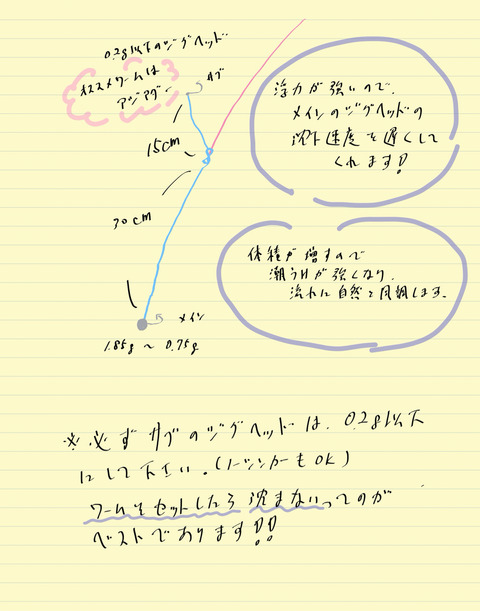 0.2g以下のジグヘッド
サブ
オススメワームは
アジアダー
15cm
30cm
メイン
1.85g〜0.75g
浮力が強いので、
メインのジグヘッドの
沈下速度を遅くして
くれます!
体積が増すので
潮うけが強くなり、
流れに自然と同調します。
※必ずサブのジグヘッドは、0.2g以下
にして下さい。(ノーシンカーもOK)
ワームをセットしたら沈まないってのが
ベストであります!!